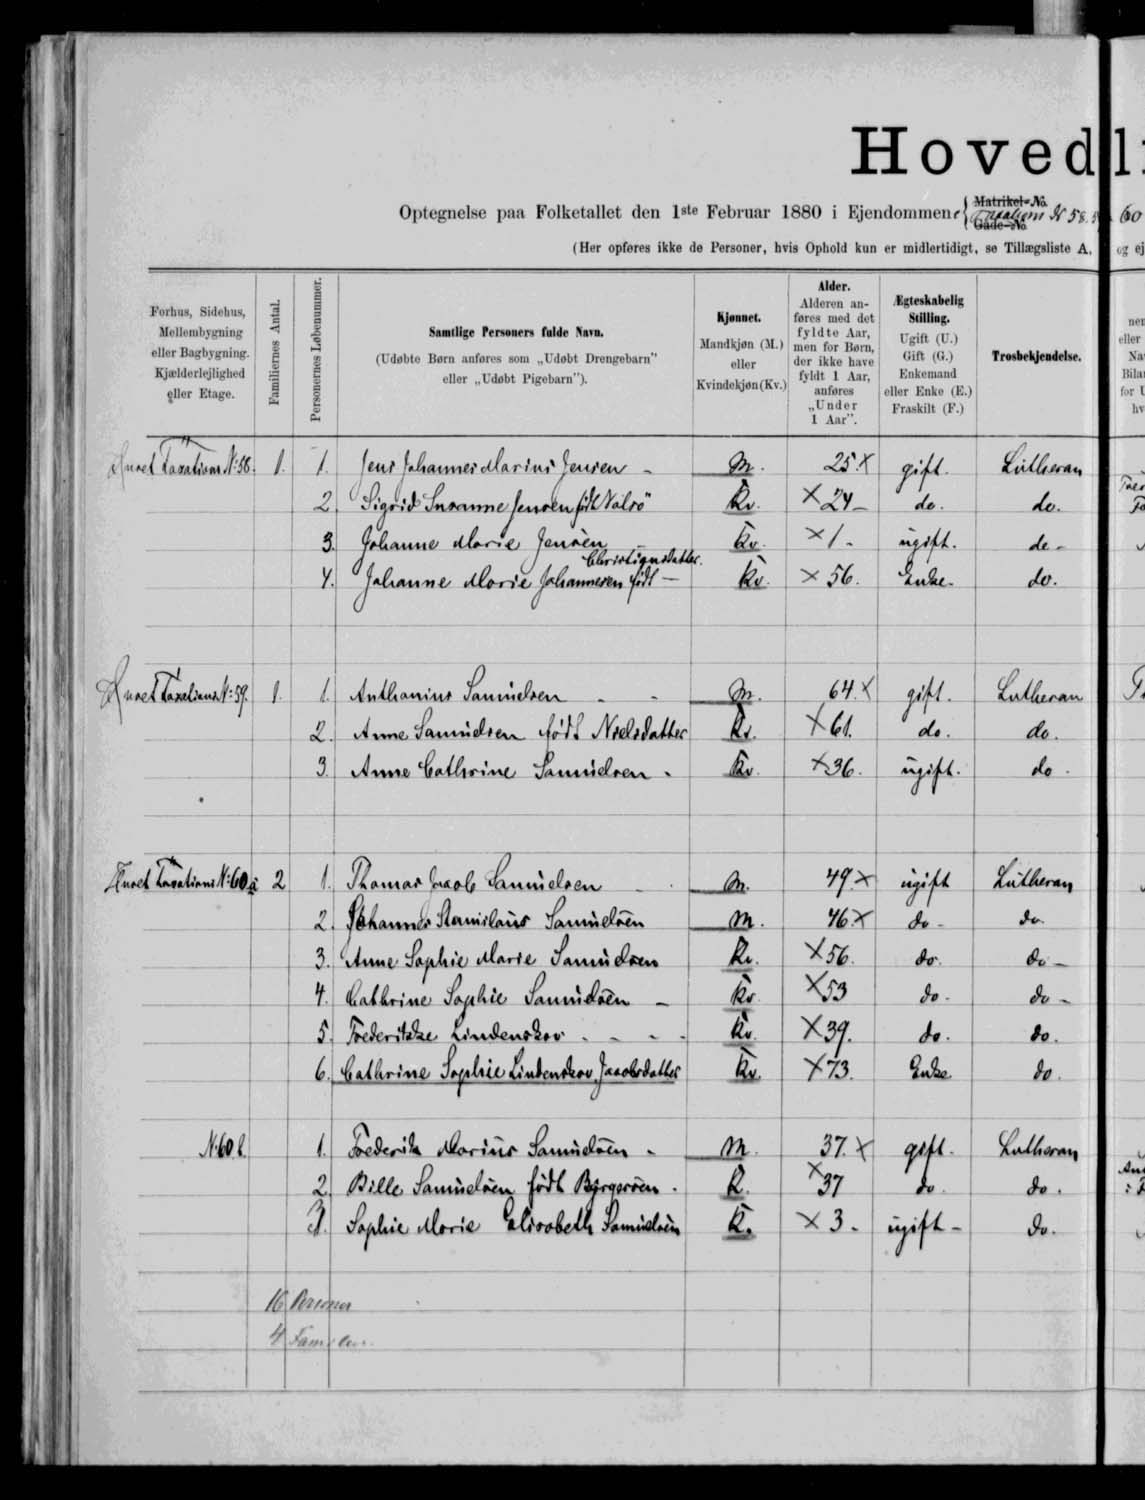 Hovedli
Optegnelse paa Folketallet den 1ste Februar 1880 i Ejendommene Matrikel-No. Taxations N 58. 60
Gade-No.
(Her opføres ikke de Personer, hvis Ophold kun er midlertidigt, se Tillægsliste A, og ej
Forhus, Sidehus, Mellembygning eller Bagbygning. Kjælderlejlighed eller Etage.
Familiernes Antal.
Personernes Løbenummer.
Samtlige Personers fulde Navn.
(Udøbte Børn anføres som „Udøbt Drengebarn"
eller „Udøbt Pigebarn").
Kjønnet.
Mandkjøn (M.)
eller
Kvindekjøn(Kv.)
Alder.
Alderen an-
føres med det
fyldte Aar,
men for Børn,
der ikke have
fyldt 1 Aar,
anføres
„Under
1 Aar".
Ægteskabelig
Stilling.
Ugift (U.)
Gift (G.)
Enkemand
eller Enke (E.)
Fraskilt (F.)
Trosbekjendelse.
Huset Taxations N: 58. 1. 1. Jens Johannes Marius Jensen - M. 25. x gift. Lutheran
2. Sigrid Susanne Jensen født Valsö Kv. x 24 - do. do.
3. Johanne Marie Jensen - Kv. x 1 - ugift. do -
Christiansdatter.
4. Johanne Marie Johannesen født - Kv. x 56. Enke. do.
Huset Taxations N: 59. 1. 1. Anthonius Samuelsen - - M. 64. x gift. Lutheran
2. Anne Samuelsen født Nielsdatter Kv. x 61. do. do.
3. Anne Cathrine Samuelsen - Kv. x 36. ugift. do.
Huset Taxations N: 60 a 2 1. Thomas Jacob Samuelsen - M. 49. x ugift Lutheran
2. Johannes Stanislaus Samuelsen M. 46. x do - do.
3. Anne Sophie Marie Samuelsen Kv. x 56. do. do -
4. Cathrine Sophie Samuelsen - Kv. x 53 do. do -
5. Frederikke Lindenskov - - - - Kv. x 39. do. do.
6. Cathrine Sophie Lindenskov, Jacobsdatter Kv. x 73. Enke do.
N: 60 b. 1. Frederik Marius Samuelsen - M. 37. x gift. Lutheran
2. Bille Samuelsen født Byrgersen - K. x 37 do do.
3. Sophie Marie Elisabeth Samuelsen K. x 3 - ugift - do.
16 Personer
4 Familier.